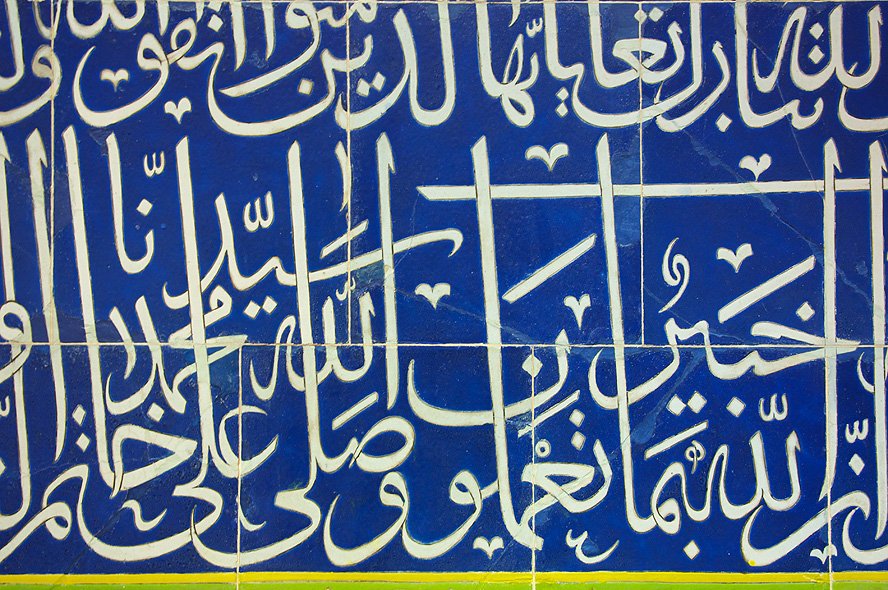 الله تبارك تعالى يا ايها الذين آمنوا اتقوا الله
ان الله خبير بما تعملون وصلى الله على سيدنا محمد خاتم